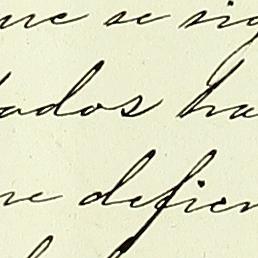 ue se sig
tados ha
re defien